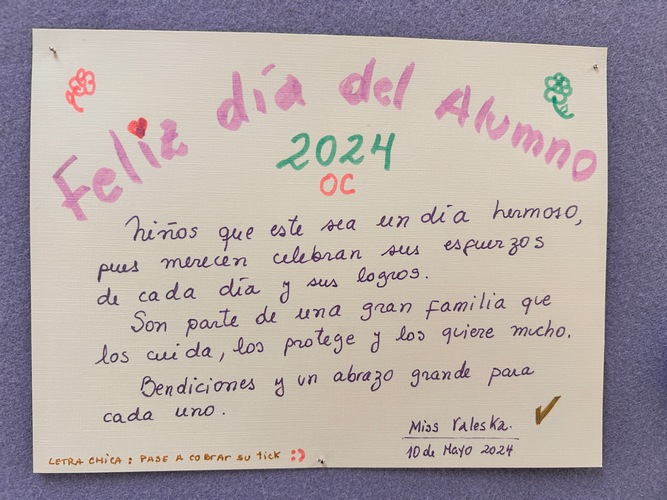 Feliz día del Alumno
2024
OC
Niños que este sea un día hermoso,
pues merecen celebran sus esfuerzos
de cada día y sus logros.
Son parte de una gran familia que
los cuida, los protege y los quiere mucho.
Bendiciones y un abrazo grande para
cada uno.
Miss Valeska.
10 de Mayo 2024
LETRA CHICA : PASE A COBRAR SU TICK :)